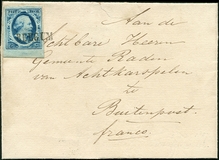 Aan de
Achtbare Heeren
Gemeente Raden
van Achtkarspelen
te
Buitenpost.
franco